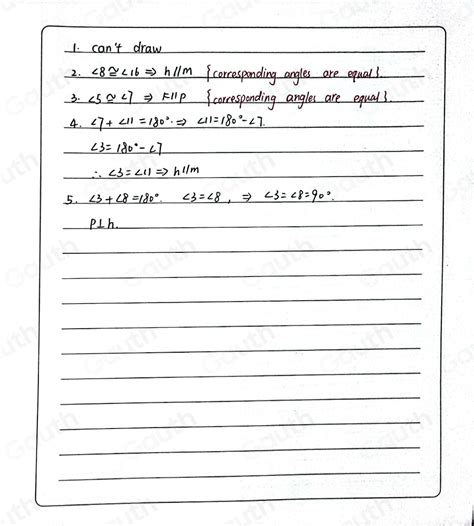 1. can't draw
2. ∠8≅∠16 ⇒ h//m {corresponding angles are equal}.
3. ∠5≅∠7 ⇒ k//p {corresponding angles are equal}.
4. ∠7+∠11=180°. ⇒ ∠11=180°-∠7.
∠3=180°-∠7
∴ ∠3=∠11 ⇒ h//m
5. ∠3+∠8=180°. ∠3=∠8, ⇒ ∠3=∠8=90°.
P⊥h.
Gauth